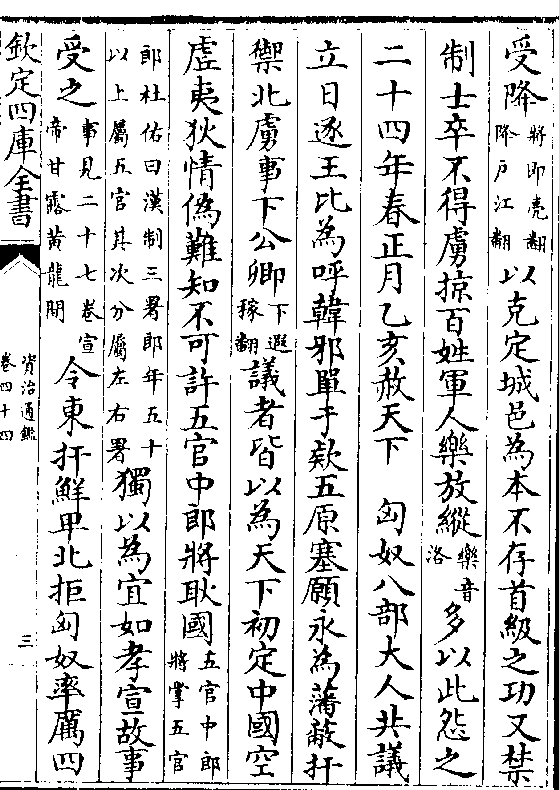 受降將即亮翻降戶江翻以克定城邑為本不存首級之功又禁
制士卒不得虜掠百姓軍人樂放縱樂音洛多以此怨之
二十四年春正月乙亥赦天下 匈奴八部大人共議
立日逐王比為呼韓邪單于欵五原塞願永為藩蔽扞
禦北虜事下公卿下遐稼翻議者皆以為天下初定中國空
虛夷狄情偽難知不可許五官中郎將耿國五官中郎將掌五官
郎杜佑曰漢制三署郎年五十以上屬五官其次分屬左右署獨以為宜如孝宣故事
受之事見二十七卷宣帝甘露黃龍間令東扞鮮卑北拒匈奴率厲四
欽定四庫全書
資治通鑑
卷四十四
三